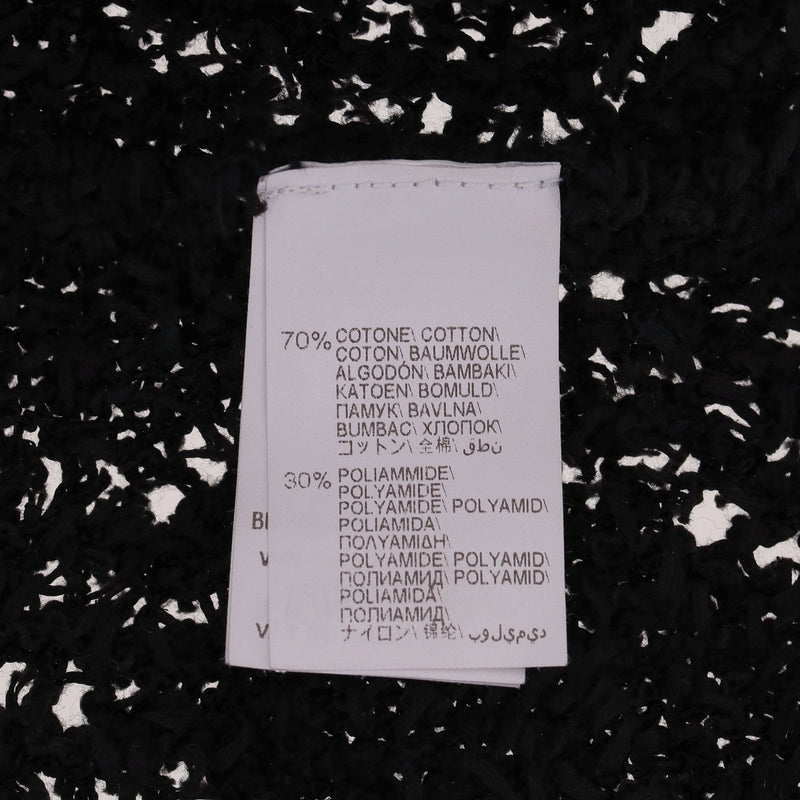 70% COTONE\ COTTON\
COTON\ BAUMWOLLE\
ALGODÓN\ BAMBAKI\
KATOEN\ BOMULD\
ПАМУК\ BAVLNA\
BUMBAC\ ХЛОПОК\
コットン\ 全棉\ قطن
30% POLIAMMIDE\
POLYAMIDE\
POLYAMIDE\ POLYAMID\
POLIAMIDA\
ΠΟΛΥΑΜΙΔΗ\
POLYAMIDE\ POLYAMID\
ПОЛИАМИД\ POLYAMID\
POLIAMIDĂ\
ПОЛИАМИД\
ナイロン\ 锦纶\ بوليميد